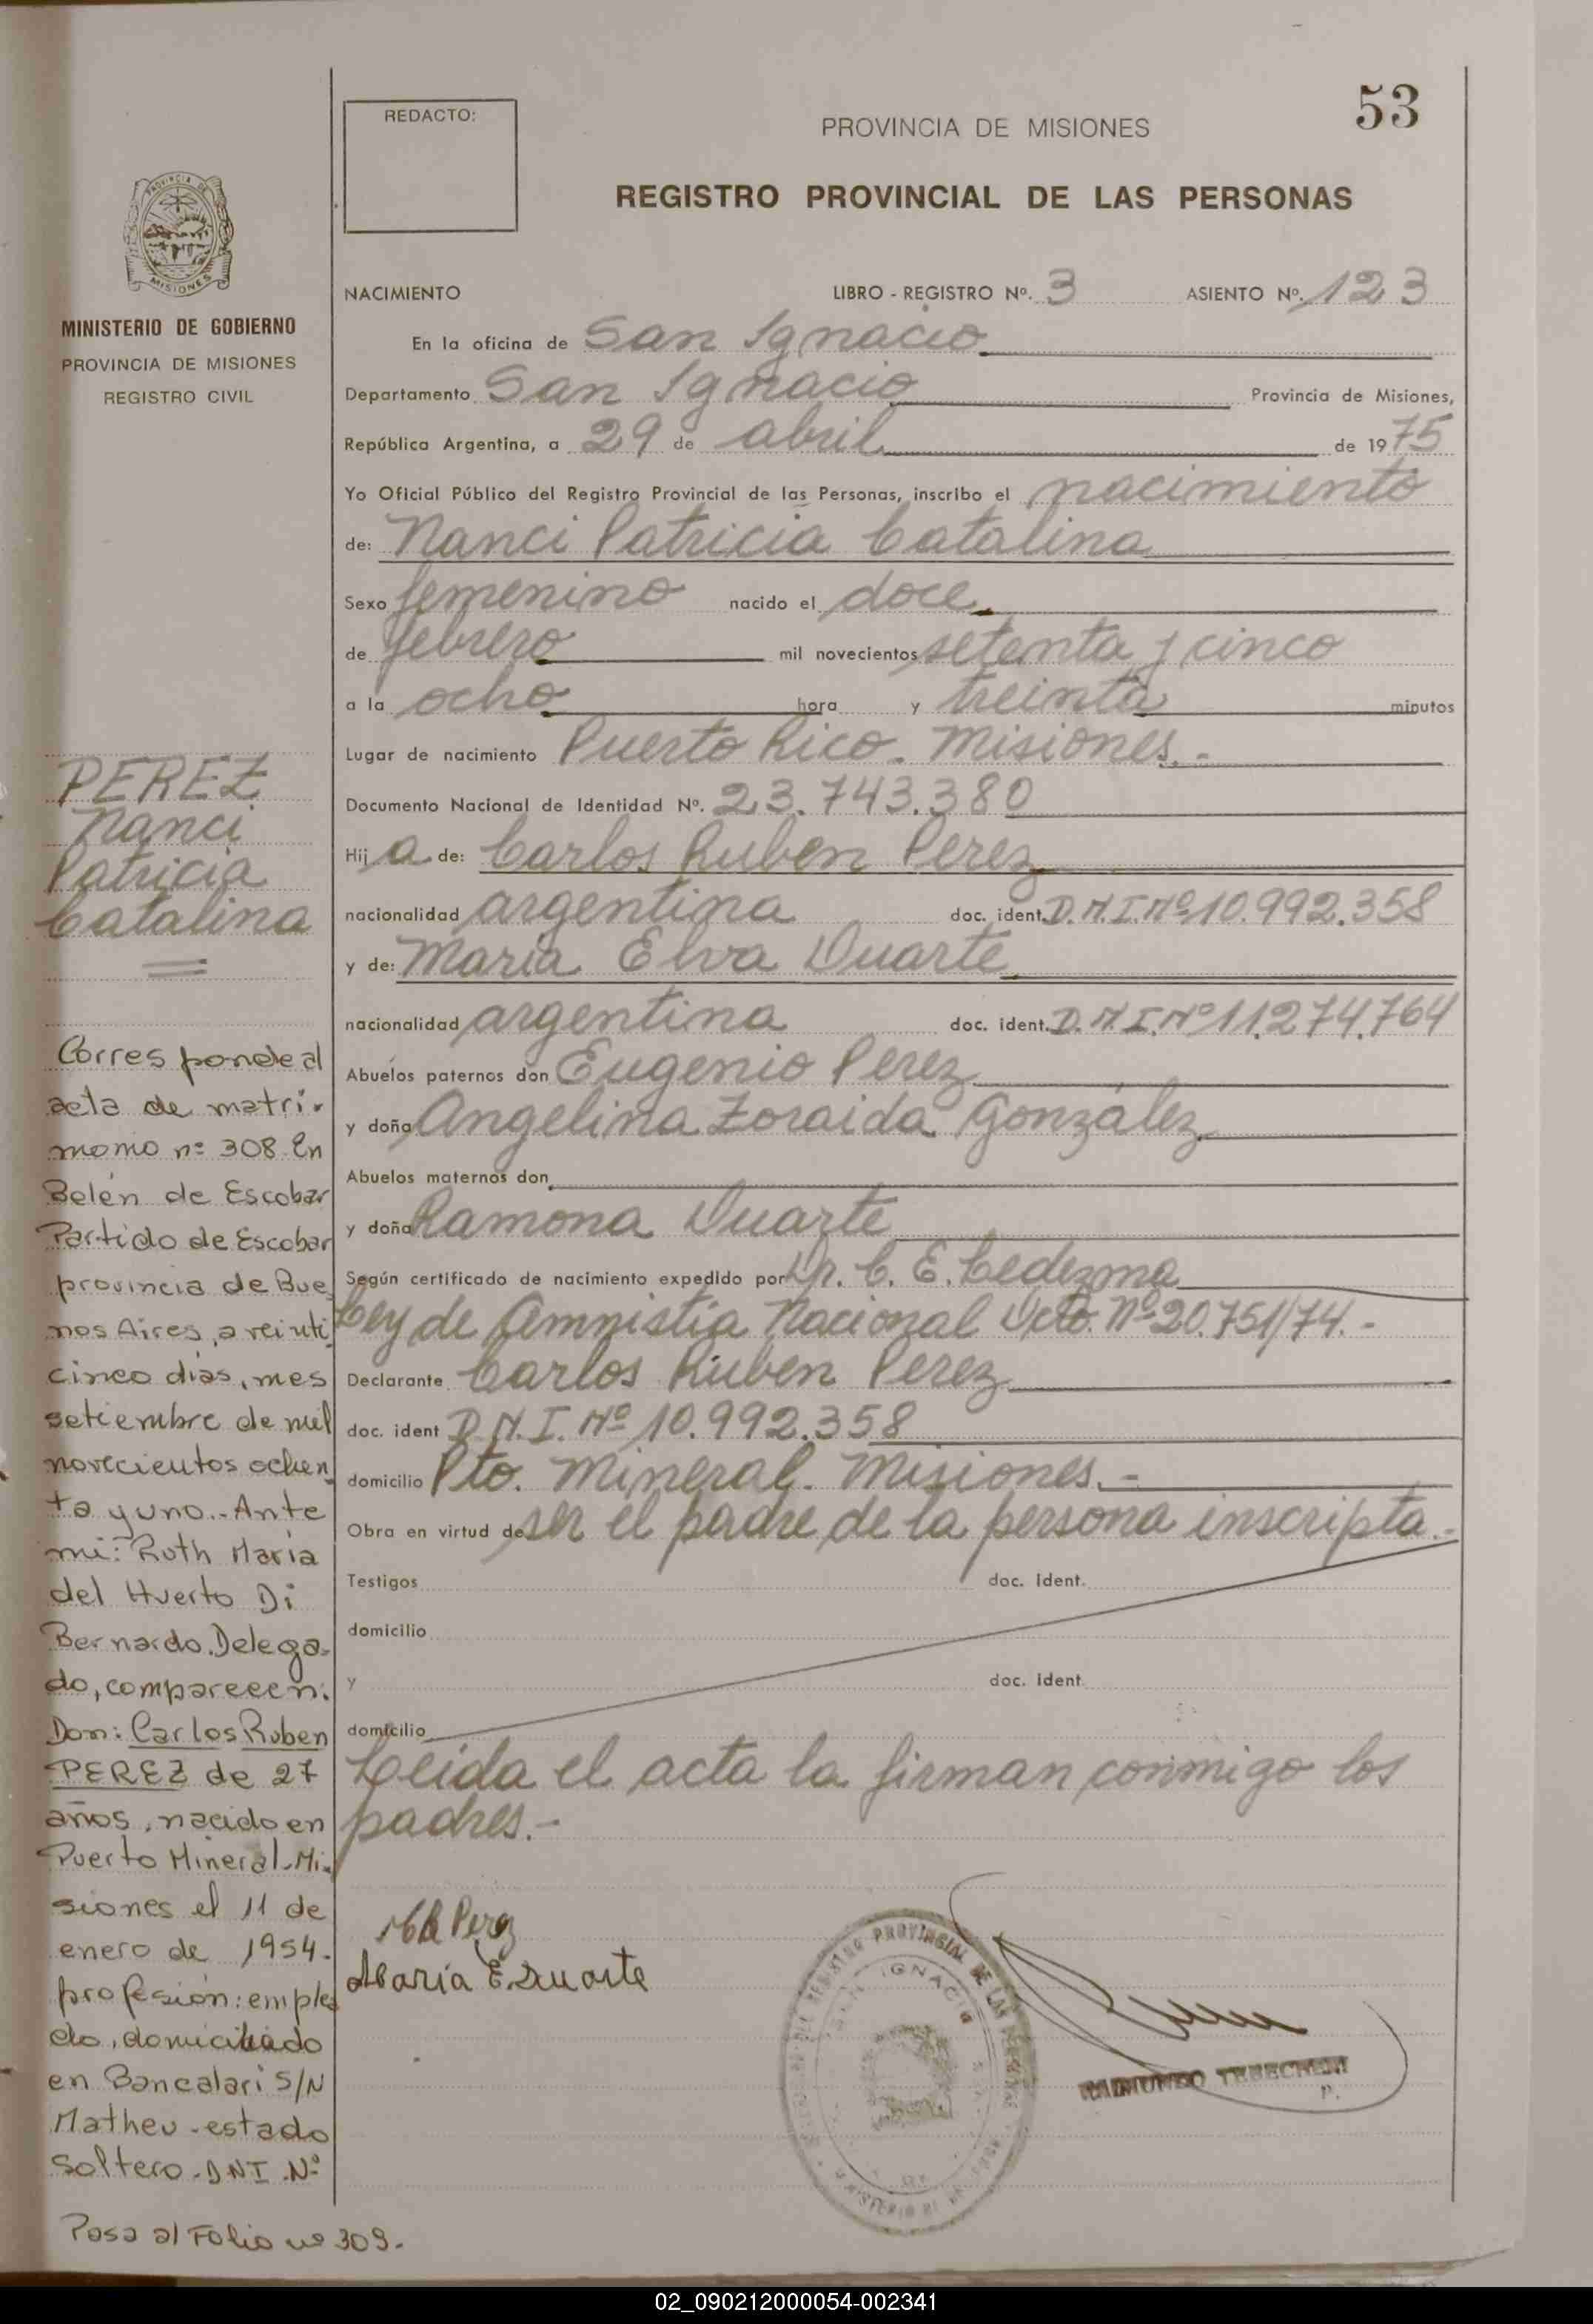 53
REDACTO:
PROVINCIA DE MISIONES
REGISTRO PROVINCIAL DE LAS PERSONAS
PROVINCIA DE
MISIONES
MINISTERIO DE GOBIERNO
PROVINCIA DE MISIONES
REGISTRO CIVIL
NACIMIENTO LIBRO - REGISTRO Nº. 3 ASIENTO Nº. 123
En la oficina de San Ignacio
Departamento San Ignacio Provincia de Misiones,
República Argentina, a 29 de abril de 1975
Yo Oficial Público del Registro Provincial de las Personas, inscribo el nacimiento
de: Nanci Patricia Catalina
Sexo femenino nacido el doce
de febrero mil novecientos setenta y cinco
a la ocho hora y treinta minutos
Lugar de nacimiento Puerto Rico. Misiones.-
Documento Nacional de Identidad Nº. 23.743.380
Hij a de: Carlos Ruben Perez
nacionalidad argentina doc. ident. D.N.I.Nº10.992.358
y de: Maria Elva Duarte
nacionalidad argentina doc. ident. D.N.I.Nº11.274.764
Abuelos paternos don Eugenio Perez
y doña Angelina Zoraida González
Abuelos maternos don
y doña Ramona Duarte
Según certificado de nacimiento expedido por Dr. C. E. Ledezma
Ley de Amnistía Nacional Dcto. Nº20.751/74.-
Declarante Carlos Ruben Perez
doc. ident D.N.I. Nº 10.992.358
domicilio Pto. Mineral. Misiones.-
Obra en virtud de ser el padre de la persona inscripta.-
Testigos doc. ident.
domicilio
y doc. ident.
domicilio
Leida el acta la firman conmigo los
padres.-
Perez
Maria E. Duarte
RAIMUNDO TEBECHERI
PEREZ
Nanci
Patricia
Catalina
Corresponde al
acta de matri-
monio nº 308. En
Belén de Escobar
Partido de Escobar
provincia de Bue
nos Aires, a veinti
cinco dias, mes
setiembre de mil
novecientos ochen
ta y uno.- Ante
mi: Ruth María
del Huerto Di
Bernardo. Delega-
do, comparecen:
Don: Carlos Ruben
PEREZ de 27
años, nacido en
Puerto Mineral-Mi-
siones el 11 de
enero de 1954.
profesión: emplea
do, domiciliado
en Bancalari S/N
Matheu - estado
Soltero - DNI Nº
Pasa al Folio nº 309.
02_090212000054-002341